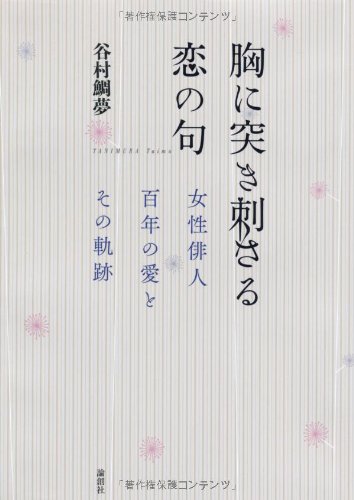 「著作権保護コンテンツ」
胸に突き刺さる
恋の句
女性俳人
百年の愛と
その軌跡
谷村鯛夢
TANIMURA Taimu
論創社
「著作権保護コンテンツ」